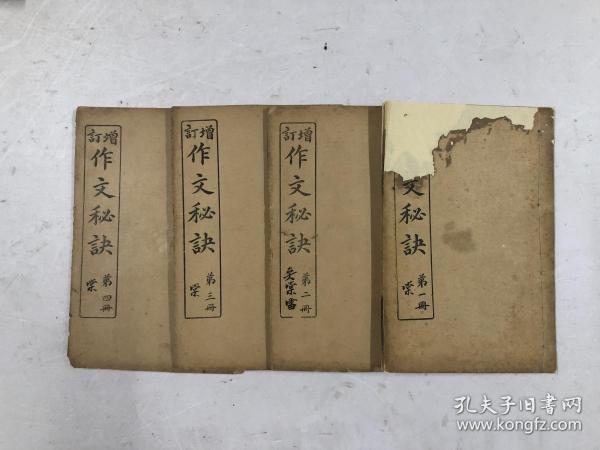 增訂
作文秘訣
第四冊
增訂
作文秘訣
第三冊
增訂
作文秘訣
第二冊
文秘訣
第一冊
孔夫子旧书网
www.kongfz.com